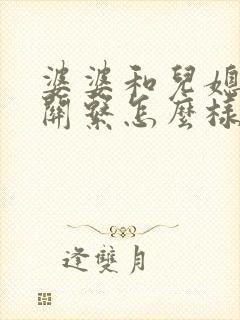 婆婆和兒媳
關繫怎麼樣
逢雙月